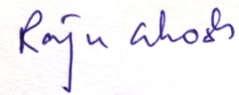 Raju Ghosh